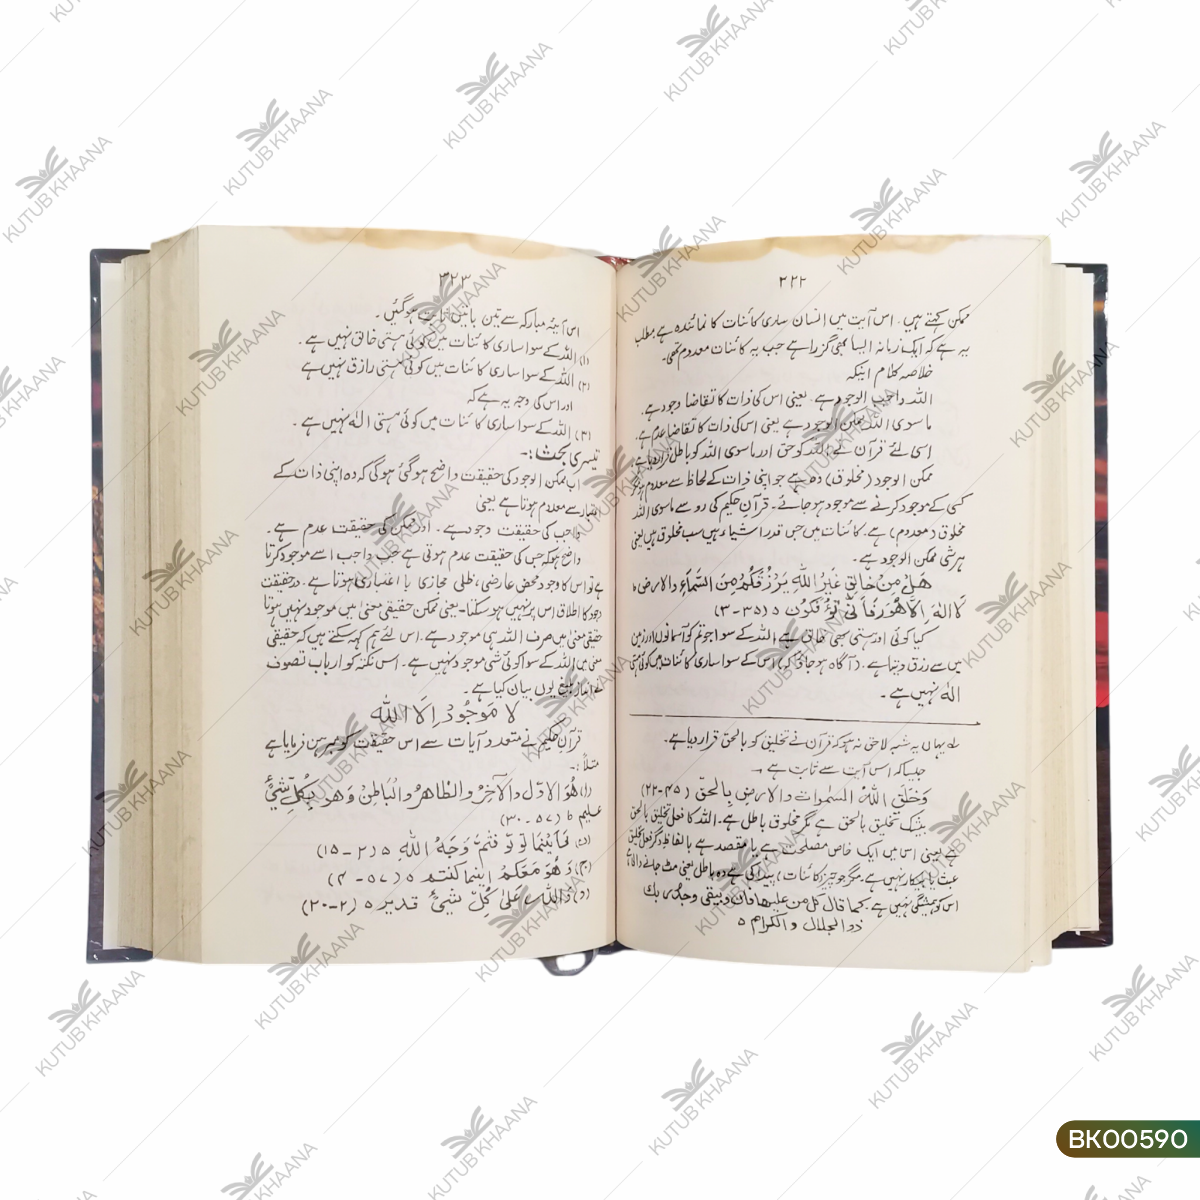 ۳۲۲
ممکن کہتے ہیں۔ اس آیت میں انسان ساری کائنات کا نمائندہ ہے مطلب
یہ ہے کہ ایک زمانہ ایسا بھی گزرا ہے جب یہ کائنات معدوم تھی۔
خلاصہ کلام اینکہ
اللہ واجب الوجود ہے۔ یعنی اس کی ذات کا تقاضا وجود ہے۔
ماسوی اللہ ممکن الوجود ہے یعنی اس کی ذات کا تقاضا عدم ہے۔
اسی لئے قرآن نے اللہ کو حق اور ماسوی اللہ کو باطل قرار دیا ہے۔
ممکن الوجود (مخلوق) وہ ہے جو اپنی ذات کے لحاظ سے معدوم ہو مگر
کسی کے موجود کرنے سے موجود ہو جائے۔ قرآن حکیم کی رو سے ماسوی اللہ
مخلوق (معدوم) ہے۔ کائنات میں جس قدر اشیاء ہیں سب مخلوق ہیں یعنی
ہر شی ممکن الوجود ہے۔
هل من خالق غیر الله یرزقکم من السماء والارض ط
لا اله الا هو ز فانی تؤفکون ہ (۳۵-۳)
کیا کوئی اور ہستی بھی خالق ہے اللہ کے سوا جو تم کو آسمانوں اور زمین
میں سے رزق دیتا ہے۔ (آگاہ ہو جاؤ کہ) اس کے سوا ساری کائنات میں کوئی ہستی
الٰہ نہیں ہے۔
لے یہاں یہ شبہ لاحق نہ ہو کہ قرآن نے تخلیق کو بالحق قرار دیا ہے۔
جیسا کہ اس آیت سے ثابت ہے
وَخَلَقَ اللهُ السموات والارض بالحق (۴۵-۲۲)
بیشک تخلیق بالحق ہے مگر مخلوق باطل ہے۔ اللہ کا فعل تخلیق بالحق
ہے یعنی اس میں ایک خاص مصلحت ہے یا مقصد ہے بالفاظ دگر فعل تخلیق
عبث یا بیکار نہیں ہے۔ مگر جو چیز (کائنات) پیدا کی ہے وہ باطل یعنی مٹ جانے والی ہے
اس کو ہمیشگی نہیں ہے۔ کما قال کل من علیها فان ویبقی وجه ربک
ذوالجلال والاکرام ہ
۳۲۳
اس آیۂ مبارکہ سے تین باتیں ثابت ہو گئیں۔
(۱) اللہ کے سوا ساری کائنات میں کوئی ہستی خالق نہیں ہے۔
(۲) اللہ کے سوا ساری کائنات میں کوئی ہستی رازق نہیں ہے
اور اس کی وجہ یہ ہے کہ
(۳) اللہ کے سوا ساری کائنات میں کوئی ہستی الٰہ نہیں ہے۔
تیسری بحث:-
اب ممکن الوجود کی حقیقت واضح ہو گئی ہو گی کہ وہ اپنی ذات کے
اعتبار سے معدوم ہوتا ہے یعنی
واجب کی حقیقت وجود ہے۔ اور ممکن کی حقیقت عدم ہے۔
واضح ہو کہ جس کی حقیقت عدم ہوتی ہے جب واجب اسے موجود کرتا
ہے تو اس کا وجود محض عارضی، ظلی مجازی یا اعتباری ہوتا ہے۔ درحقیقت
وجود کا اطلاق اس پر نہیں ہو سکتا۔ یعنی ممکن حقیقی معنیٰ میں موجود نہیں ہوتا
حقیقی معنیٰ میں صرف اللہ ہی موجود ہے۔ اس لئے ہم کہہ سکتے ہیں کہ حقیقی
معنیٰ میں اللہ کے سوا کوئی شی موجود نہیں ہے۔ اس نکتہ کو ارباب تصوف
نے بانداز بلیغ یوں بیان کیا ہے۔
لا موجود الا الله
قرآن حکیم نے متعدد آیات سے اس حقیقت کو مبرہن فرمایا ہے
مثلاً:-
(۱) هُوَ الاوّل والآخر والظاهر والباطن وهو بکل شیءٍ
علیم ط (۵۷-۳)
(ب) فاینما تولوا فثم وجه الله ہ (۲-۱۵)
(ج) وهو معکم اینما کنتم ہ (۵۷-۴)
(د) والله علی کل شیءٍ قدیر ہ (۲-۲۰)
KUTUB KHAANA
BK00590